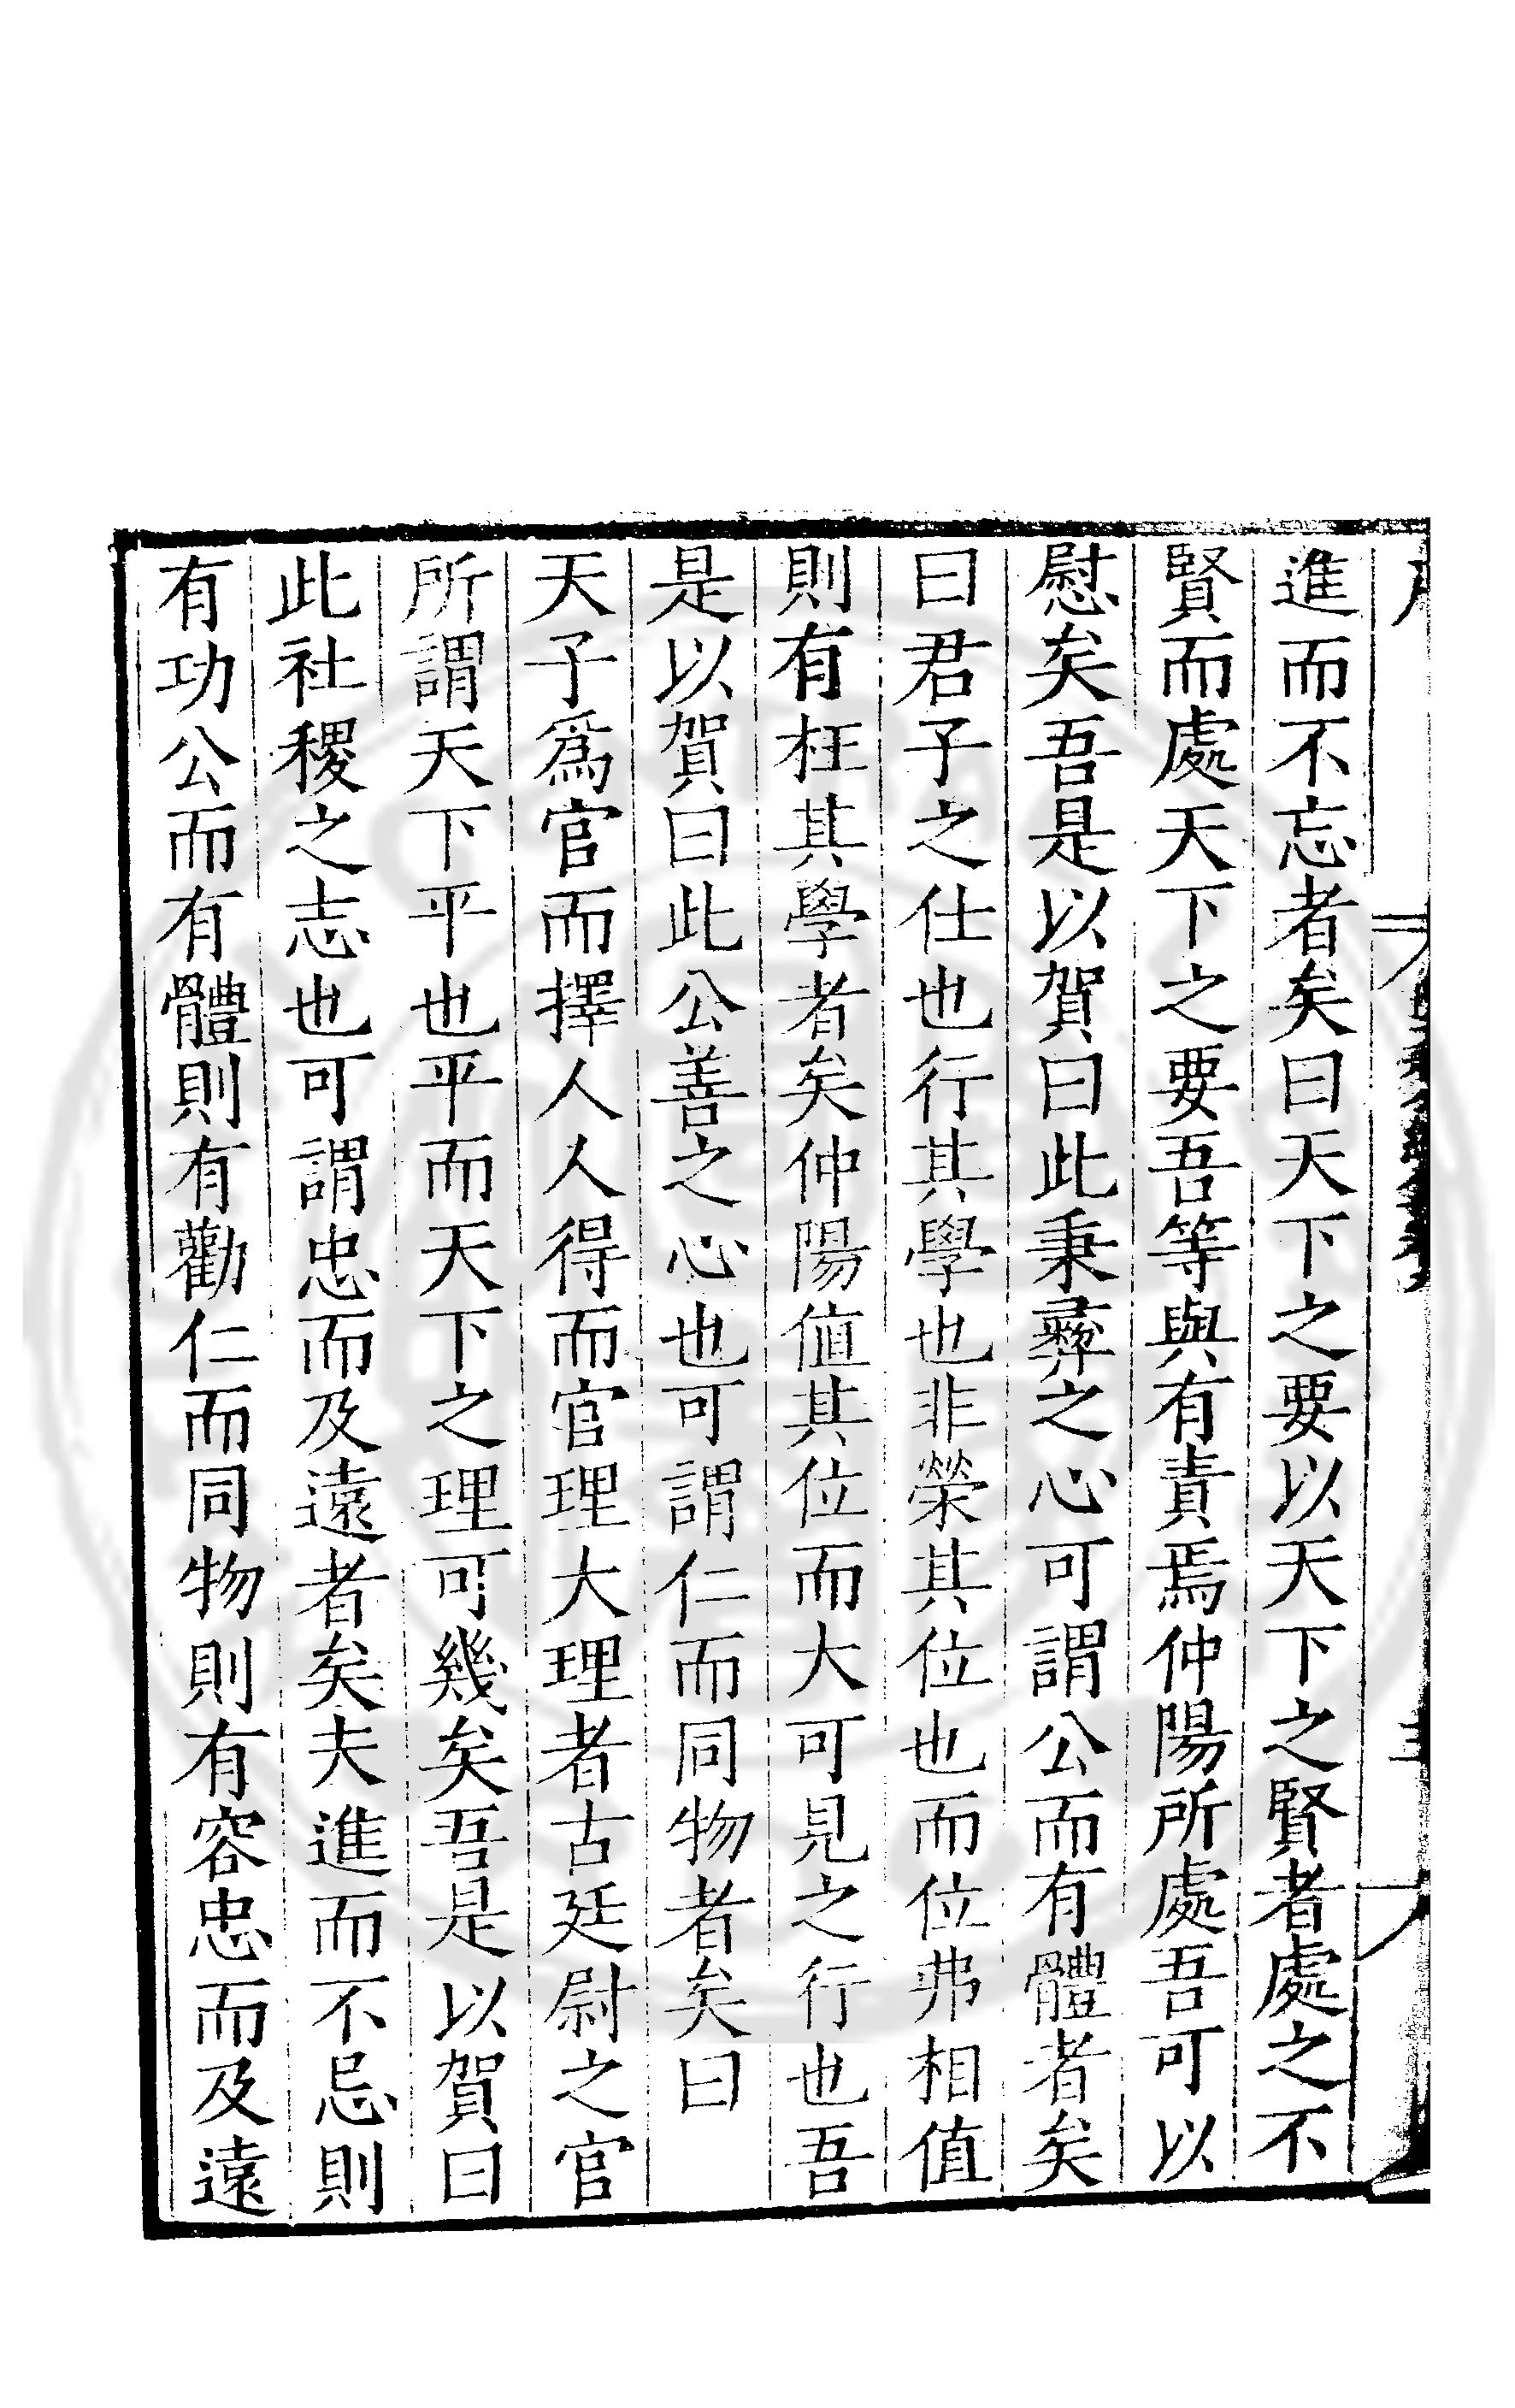 進而不忘者矣曰天下之要以天下之賢者處之不
賢而處天下之要吾等與有責焉仲陽所處吾可以
慰矣吾是以賀曰此秉彝之心可謂公而有體者矣
曰君子之仕也行其學也非榮其位也而位弗相值
則有枉其學者矣仲陽值其位而大可見之行也吾
是以賀曰此公善之心也可謂仁而同物者矣曰
天子爲官而擇人人得而官理大理者古廷尉之官
所謂天下平也平而天下之理可幾矣吾是以賀曰
此社稷之志也可謂忠而及遠者矣夫進而不忌則
有功公而有體則有勸仁而同物則有容忠而及遠